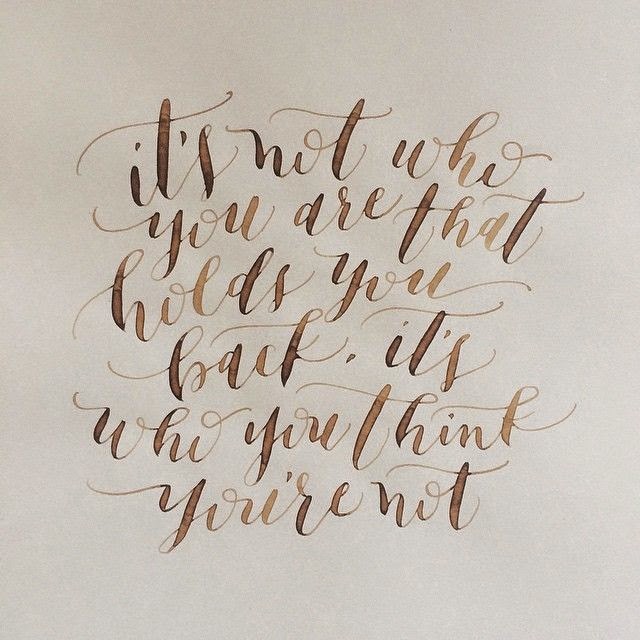 it's not who
you are that
holds you
back. it's
who you think
you're not